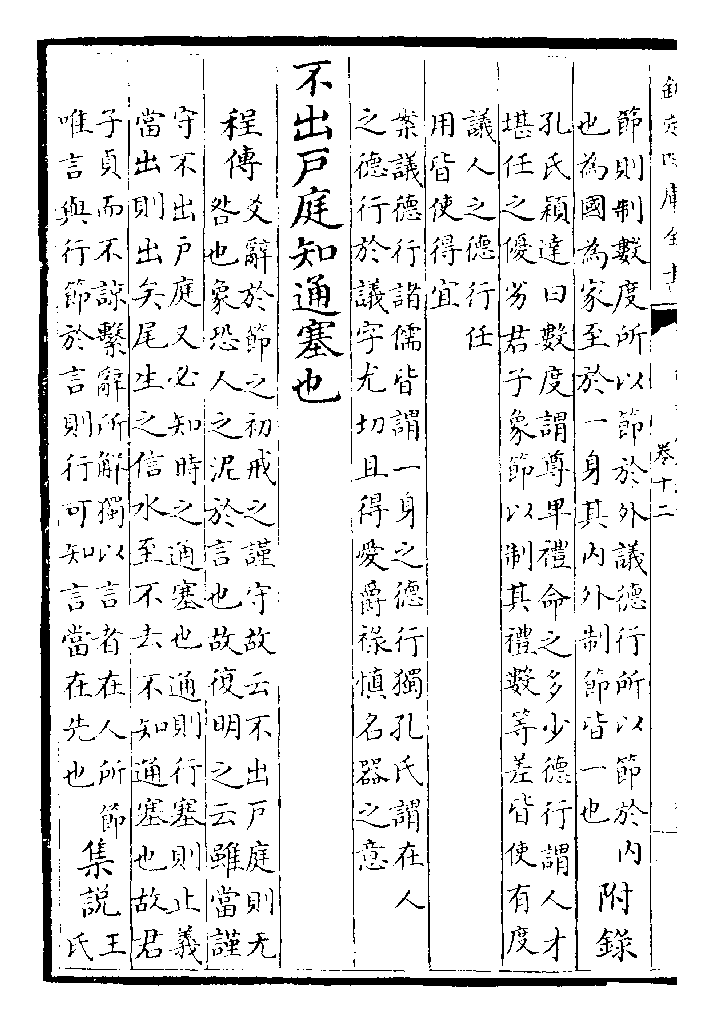 欽定四庫全書
卷十二
節則制數度所以節於外議德行所以節於內
也為國為家至於一身其內外制節皆一也
附錄
孔氏穎達曰數度謂尊卑禮命之多少德行謂人才
堪任之優劣君子象節以制其禮數等差皆使有度
議人之德行任
用皆使得宜
案議德行諸儒皆謂一身之德行獨孔氏謂在人
之德行於議字尤切且得愛爵祿慎名器之意
不出戶庭知通塞也
程傳
爻辭於節之初戒之謹守故云不出戶庭則无
咎也象恐人之泥於言也故復明之云雖當謹
守不出戶庭又必知時之通塞也通則行塞則止義
當出則出矣尾生之信水至不去不知通塞也故君
子貞而不諒繫辭所解獨以言者在人所節
唯言與行節於言則行可知言當在先也
集說
王
氏